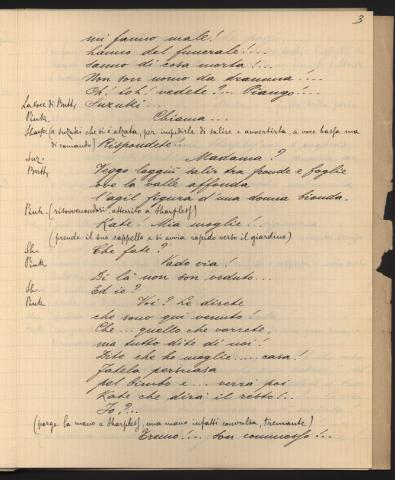 3
mi fanno male!
hanno del funerale!...
sanno di cosa morta!...
Non son uomo da dramma!...
Oh! to'! vedete?... Piango!...
La voce di Butt. Suzuki...
Pink. Chiama...
Sharp. (a Suzuki che si è alzata, per impedirle di salire e avvertirla, a voce bassa ma
di comando) Rispondete!...
Suz. Madama?
Butt. Veggo laggiù salir tra fronde e foglie
ove la valle affonda
l'agil figura d'una donna bionda.
Pink. (risovvenendosi, atterrito a Sharpless)
Kate. Mia moglie!..
(prende il suo cappello e si avvia rapido verso il giardino)
Sh. Che fate?
Pink Vado via!
Di là non son veduto...
Sh. Ed io?
Pink Voi? Le direte
che sono qui venuto!
Che... quello che vorrete,
ma tutto dite di noi!
Dite che ho moglie..... casa!
Fatela persuasa
pel bimbo e... verrà poi
Kate che dirà il resto!..
Io?...
(porge la mano a Sharpless, una mano infatti convulsa, tremante)
Tremo!... Son commosso!...